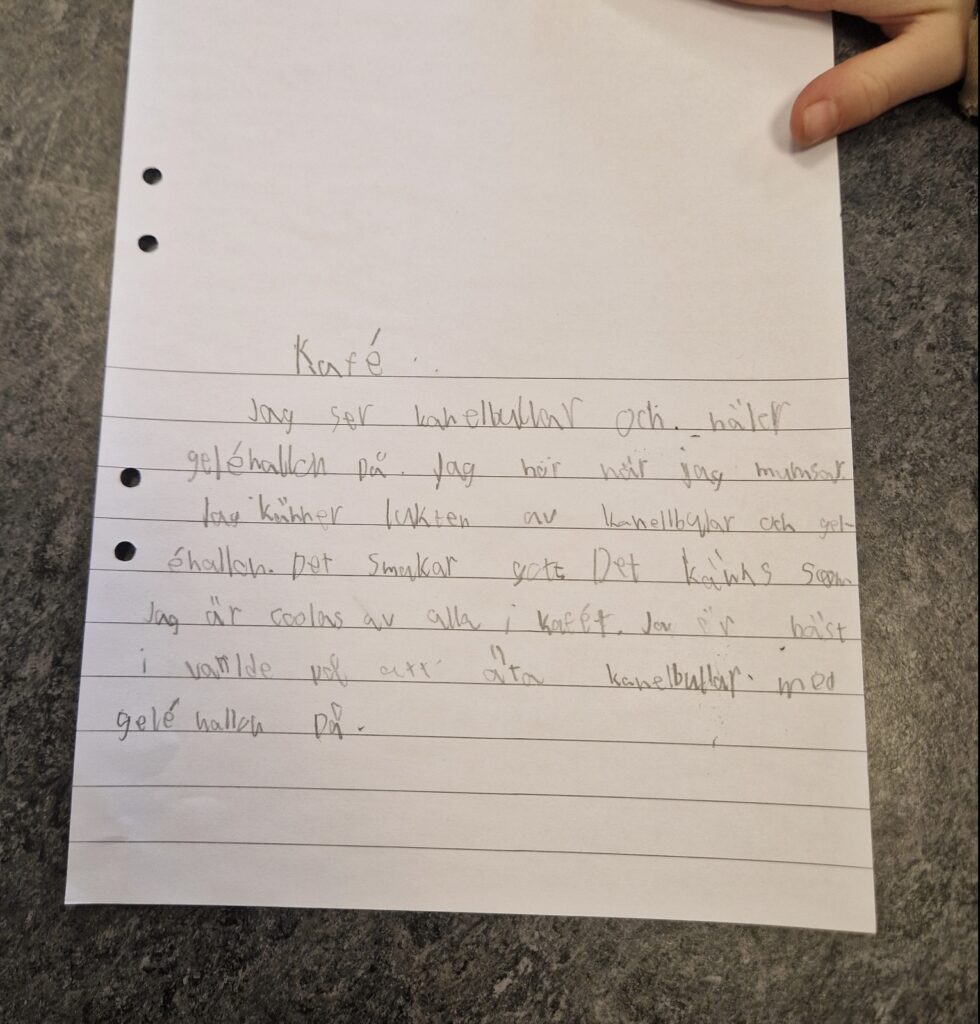 Kafé
Jag ser kanelbullar och häler
geléhallon på. Jag hör när jag mumsar.
Jag känner lukten av kanellbylar och gel-
éhallon. Det smakar gott Det känns som
jag är coolas av alla i kafét. Ja är bäst
i varlde på att äta kanelbullar med
gelé hallon på.